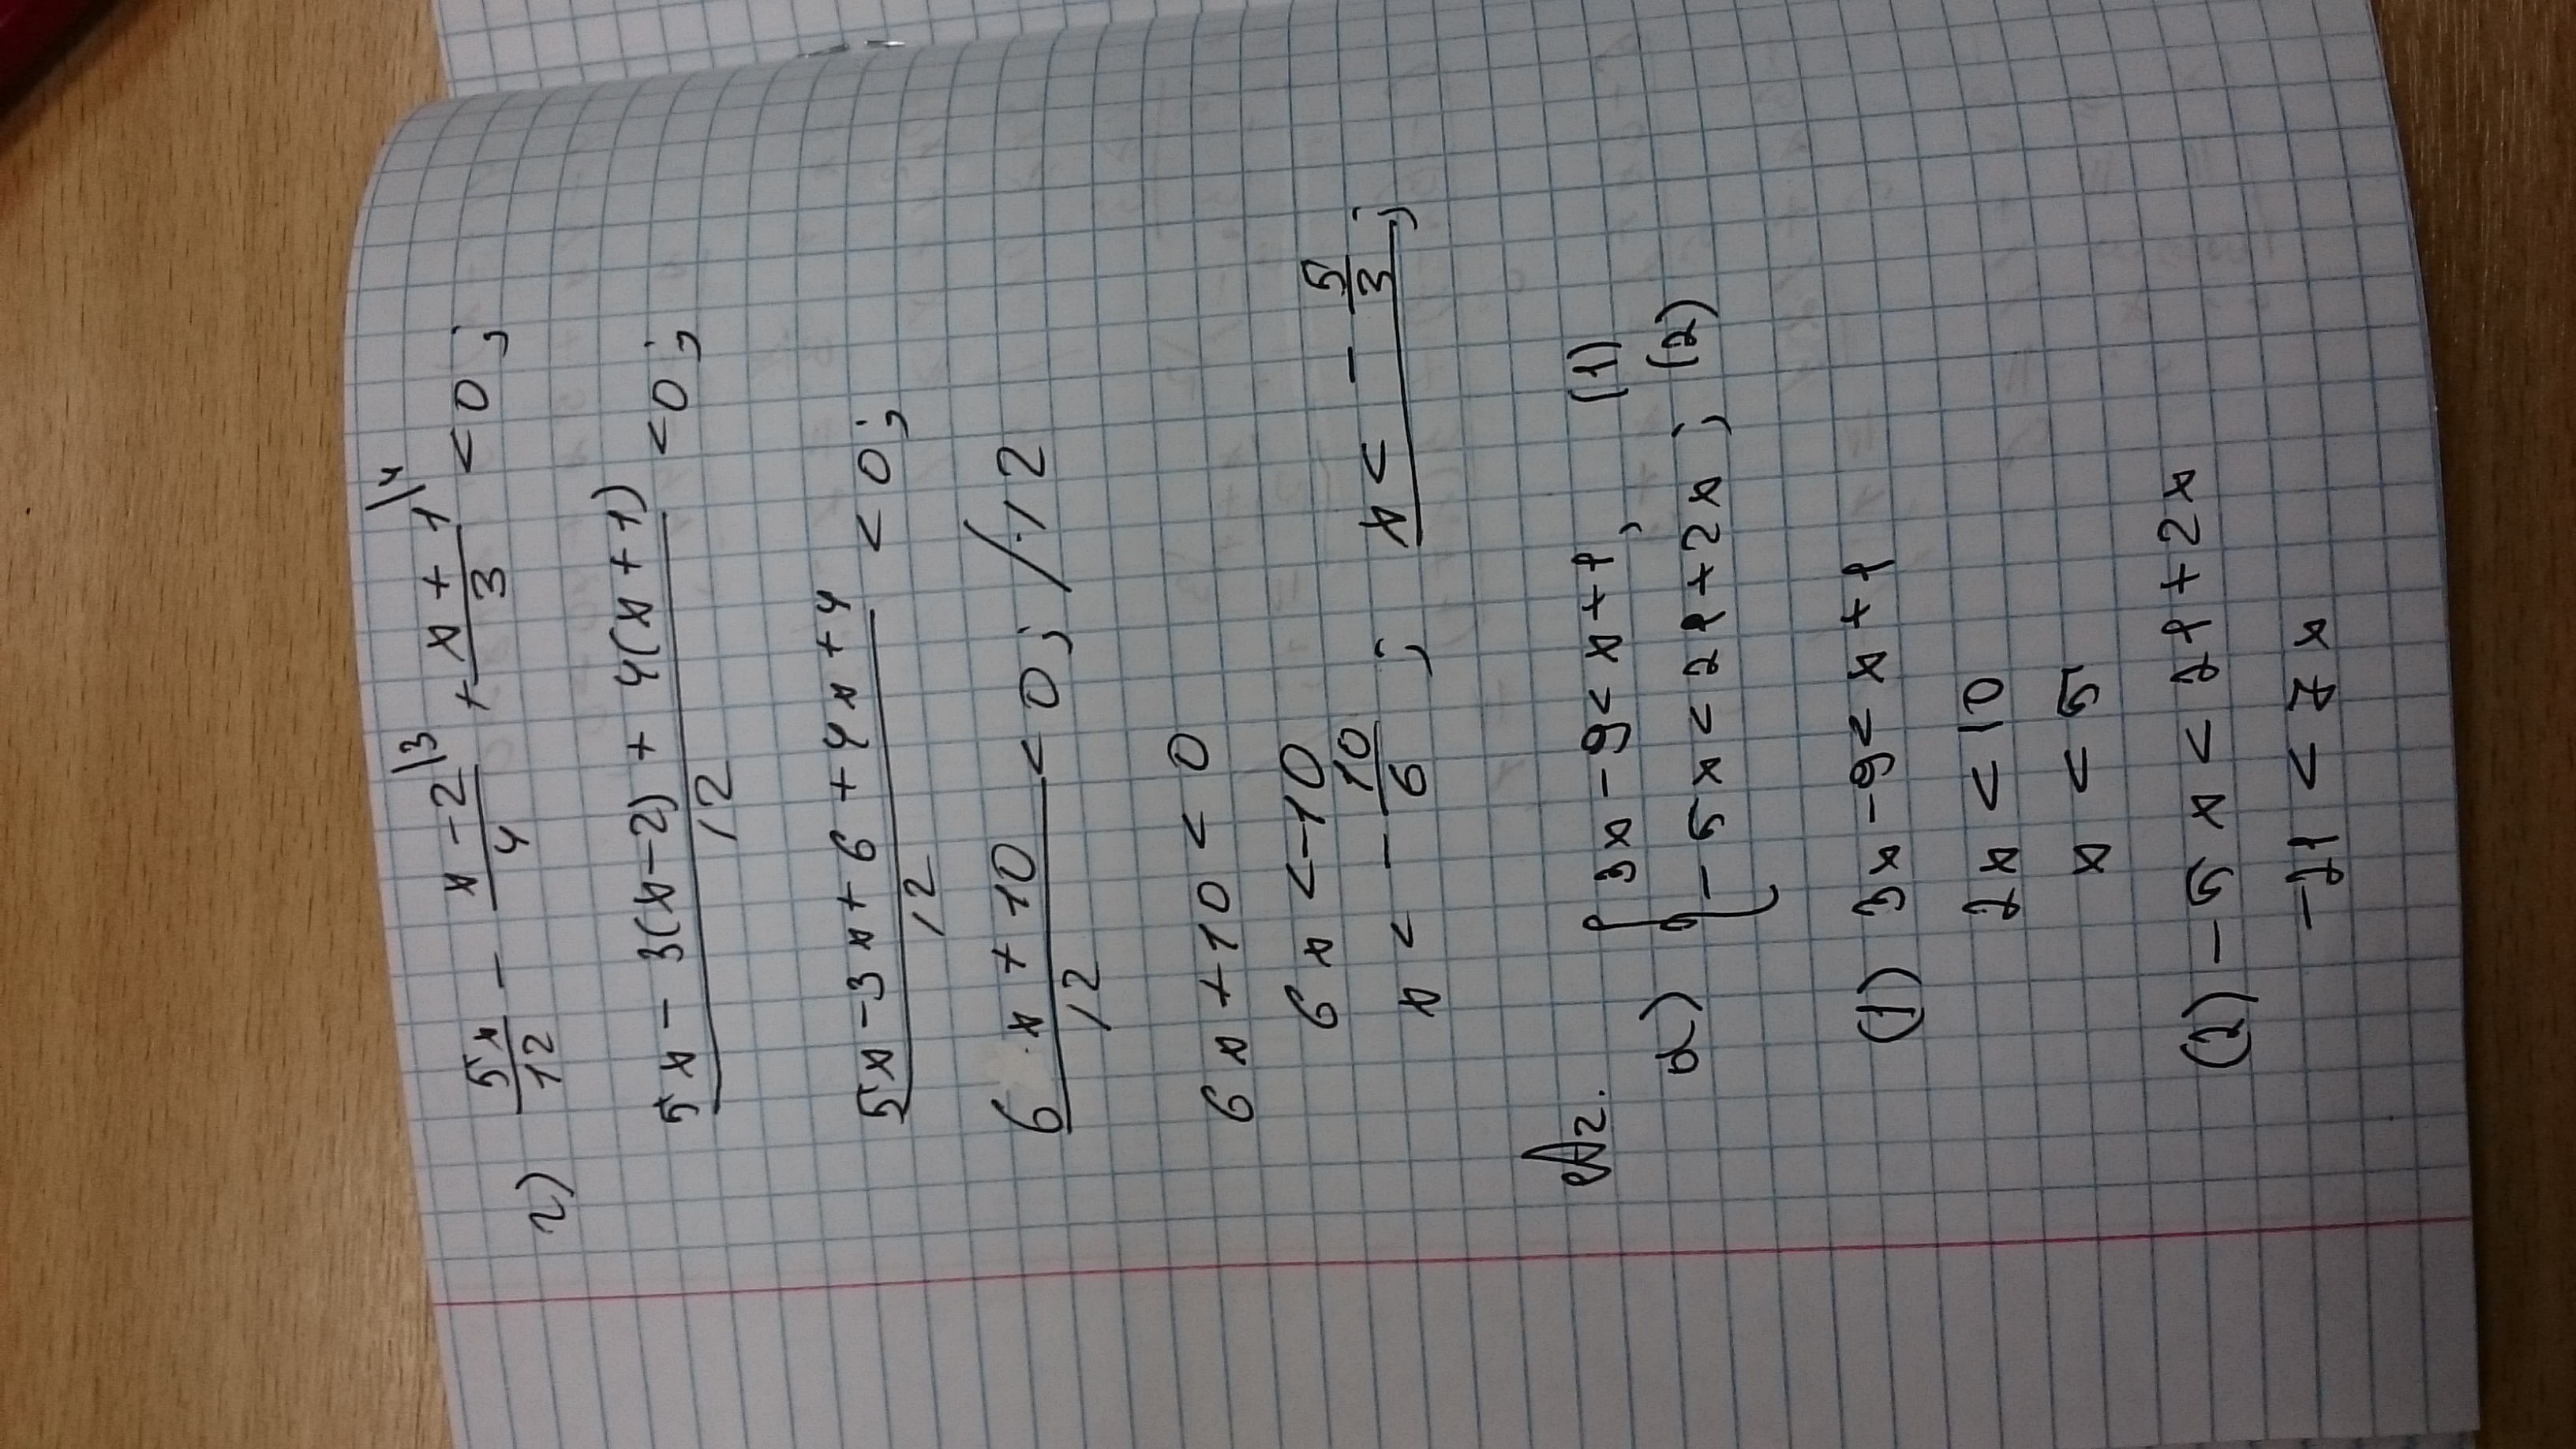 г) 5x/12 - (x-2)/4 \3 + (x+1)/3 \4 < 0;
(5x - 3(x-2) + 4(x+1))/12 < 0;
(5x - 3x + 6 + 4x + 4)/12 < 0;
(6x + 10)/12 < 0; /·12
6x + 10 < 0
6x < -10
x < - 10/6 ; x < - 5/3 ;
№2.
а) { 3x - 9 < x + 1, (1)
- 5x < 21 + 2x; (2)
(1) 3x - 9 < x + 1
2x < 10
x < 5
(2) - 5x < 21 + 2x
- 21 < 7x